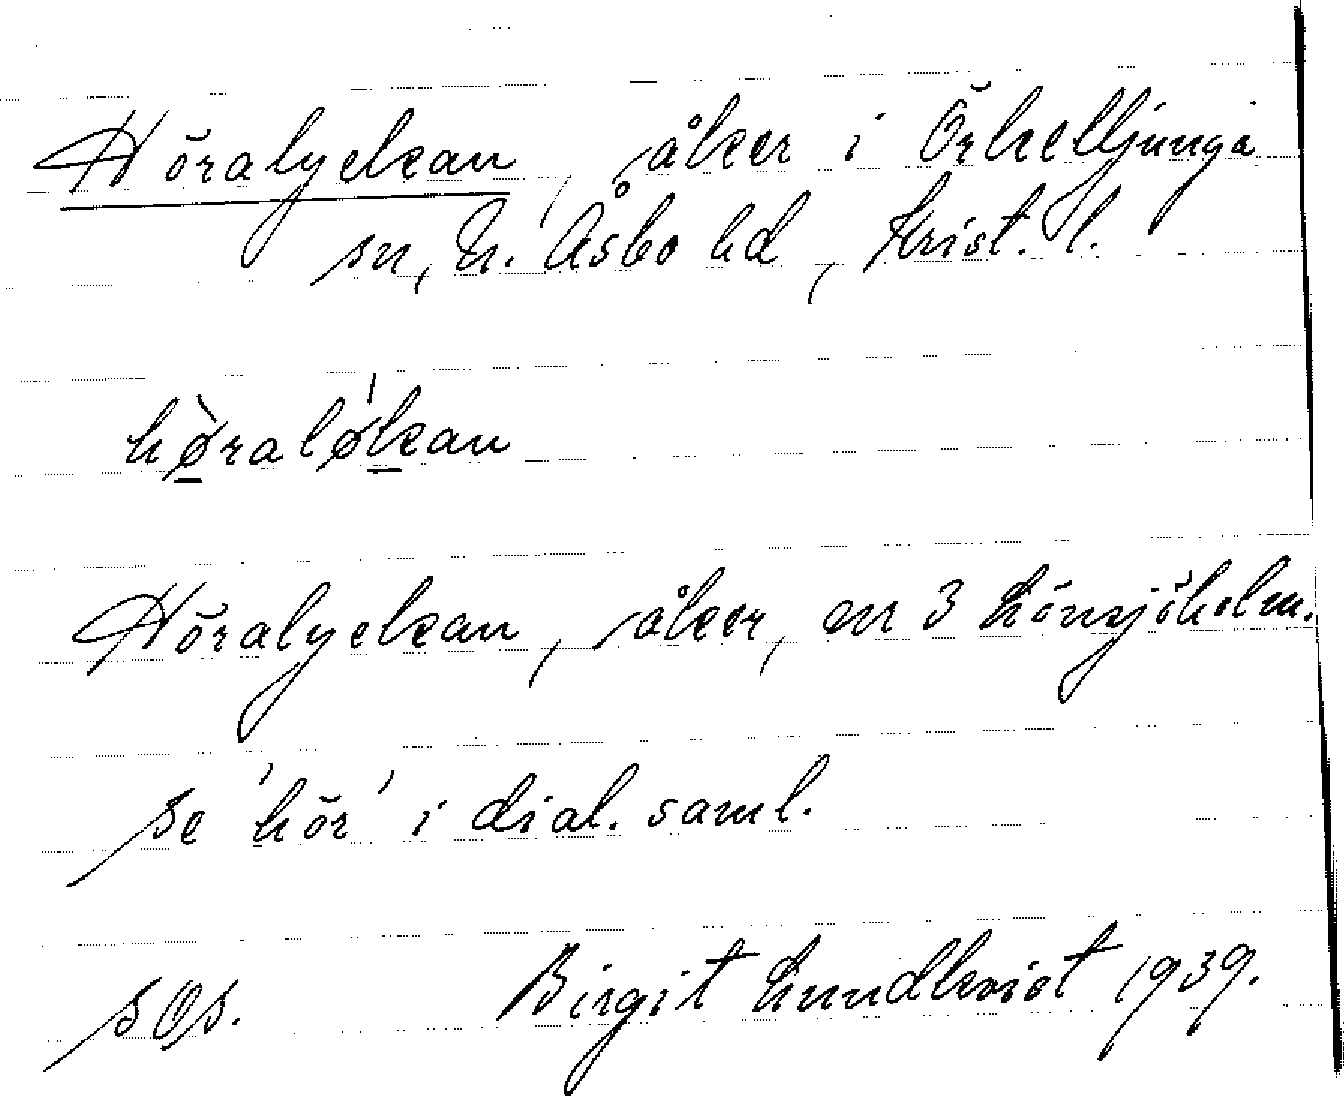 Höralyckan, åker i Örkelljunga
sn, N. Åsbo hd, Krist. l.
hø̀raløkan
Höralyckan, åker, nr 3 Lönsjöholm.
se 'hör' i dial. saml.
sOs. Birgit Lundkvist 1939.